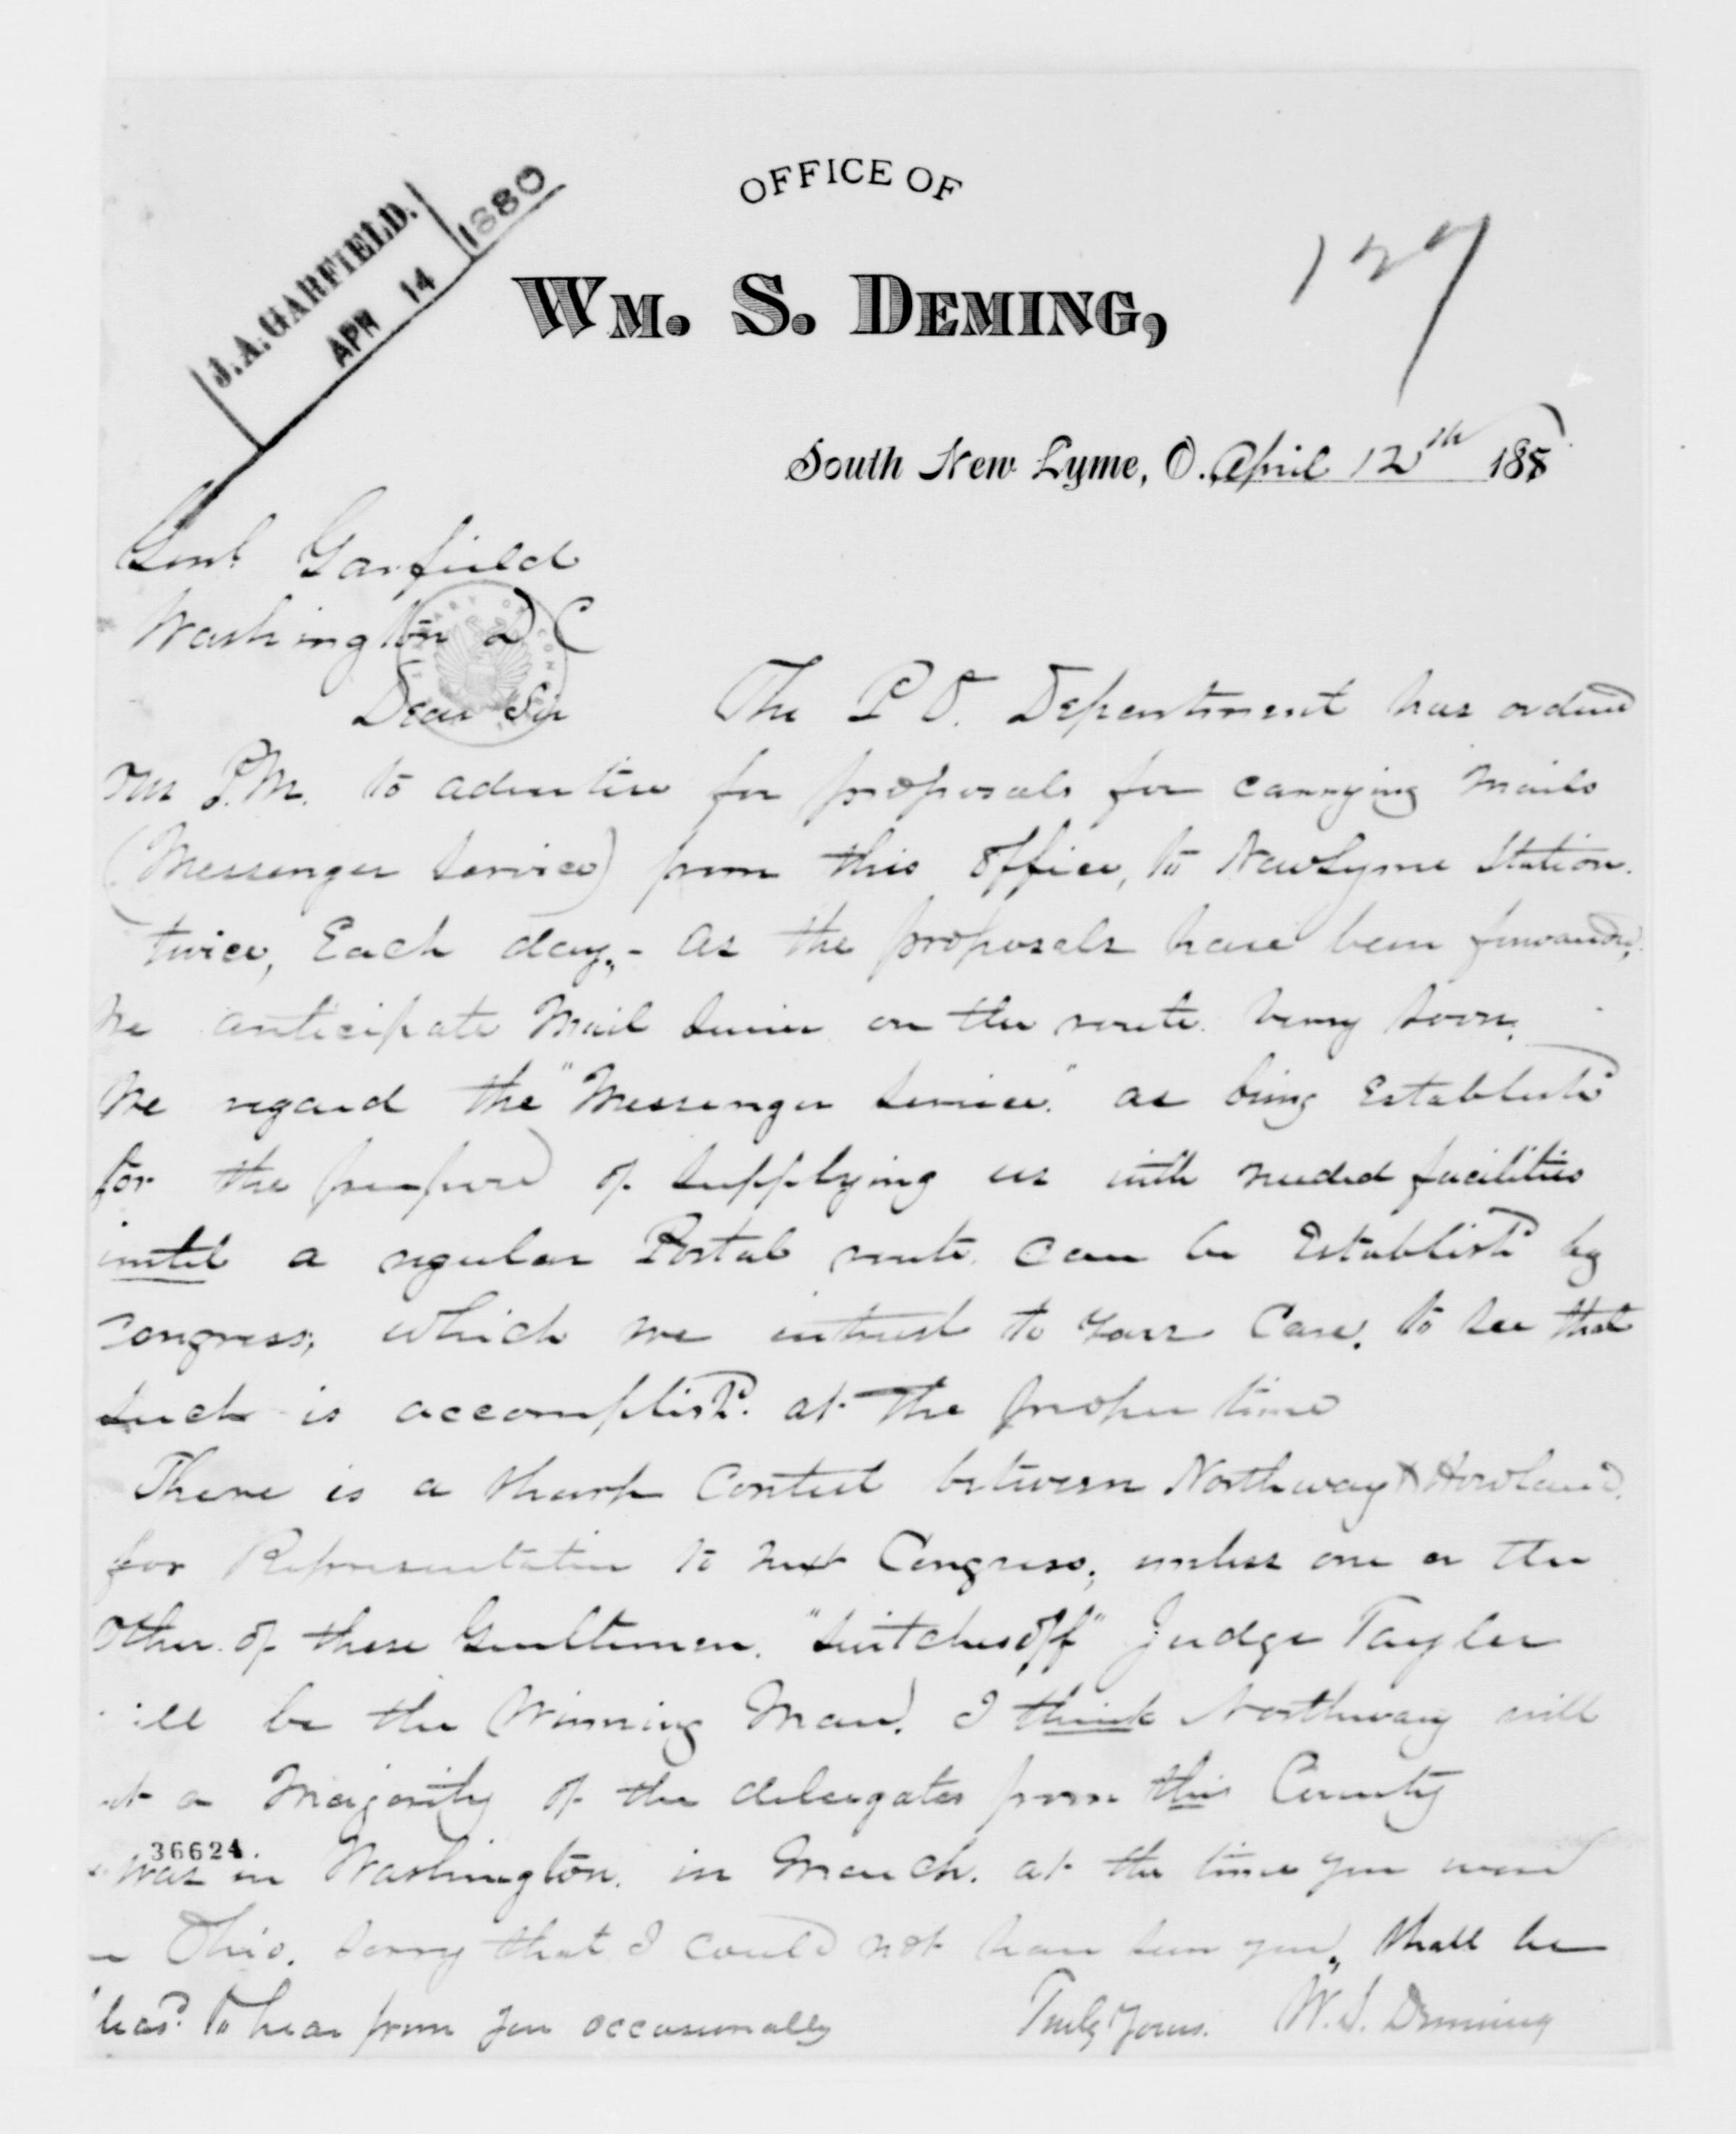 OFFICE OF
J. A. GARFIELD.
APR 14
1880
WM. S. DEMING,
127
South New Lyme, O. April 12th 188
Genl Garfield
Washington D C
Dear Sir The P O. Department has ordered
our P.M. to advertise for proposals for carrying Mails
(Messenger Service) from this office, to New Lyme Station.
twice, Each day,- as the proposals have been forwarded,
We anticipate Mail Service on the route very soon.
We regard the "Messenger Service." as being Establish'd
for the purpose of supplying us with needed facilities
until a regular Postal route can be Establish'd by
Congress, which we intrust to your Care, to see that
such is accomplish'd. at the proper time
There is a sharp Contest between Northway & Howland.
for Representative to next Congress; unless one or the
other of these Gentlemen. "switches off" Judge Tayler
will be the Winning Man. I think Northway will
a Majority of the delegates from this County
36624.
was in Washington. in March. at the time you were
Ohio. sorry that I could not have seen you, shall be
pleas'd to hear from you occasionally Truly Yours. W. S. Deming